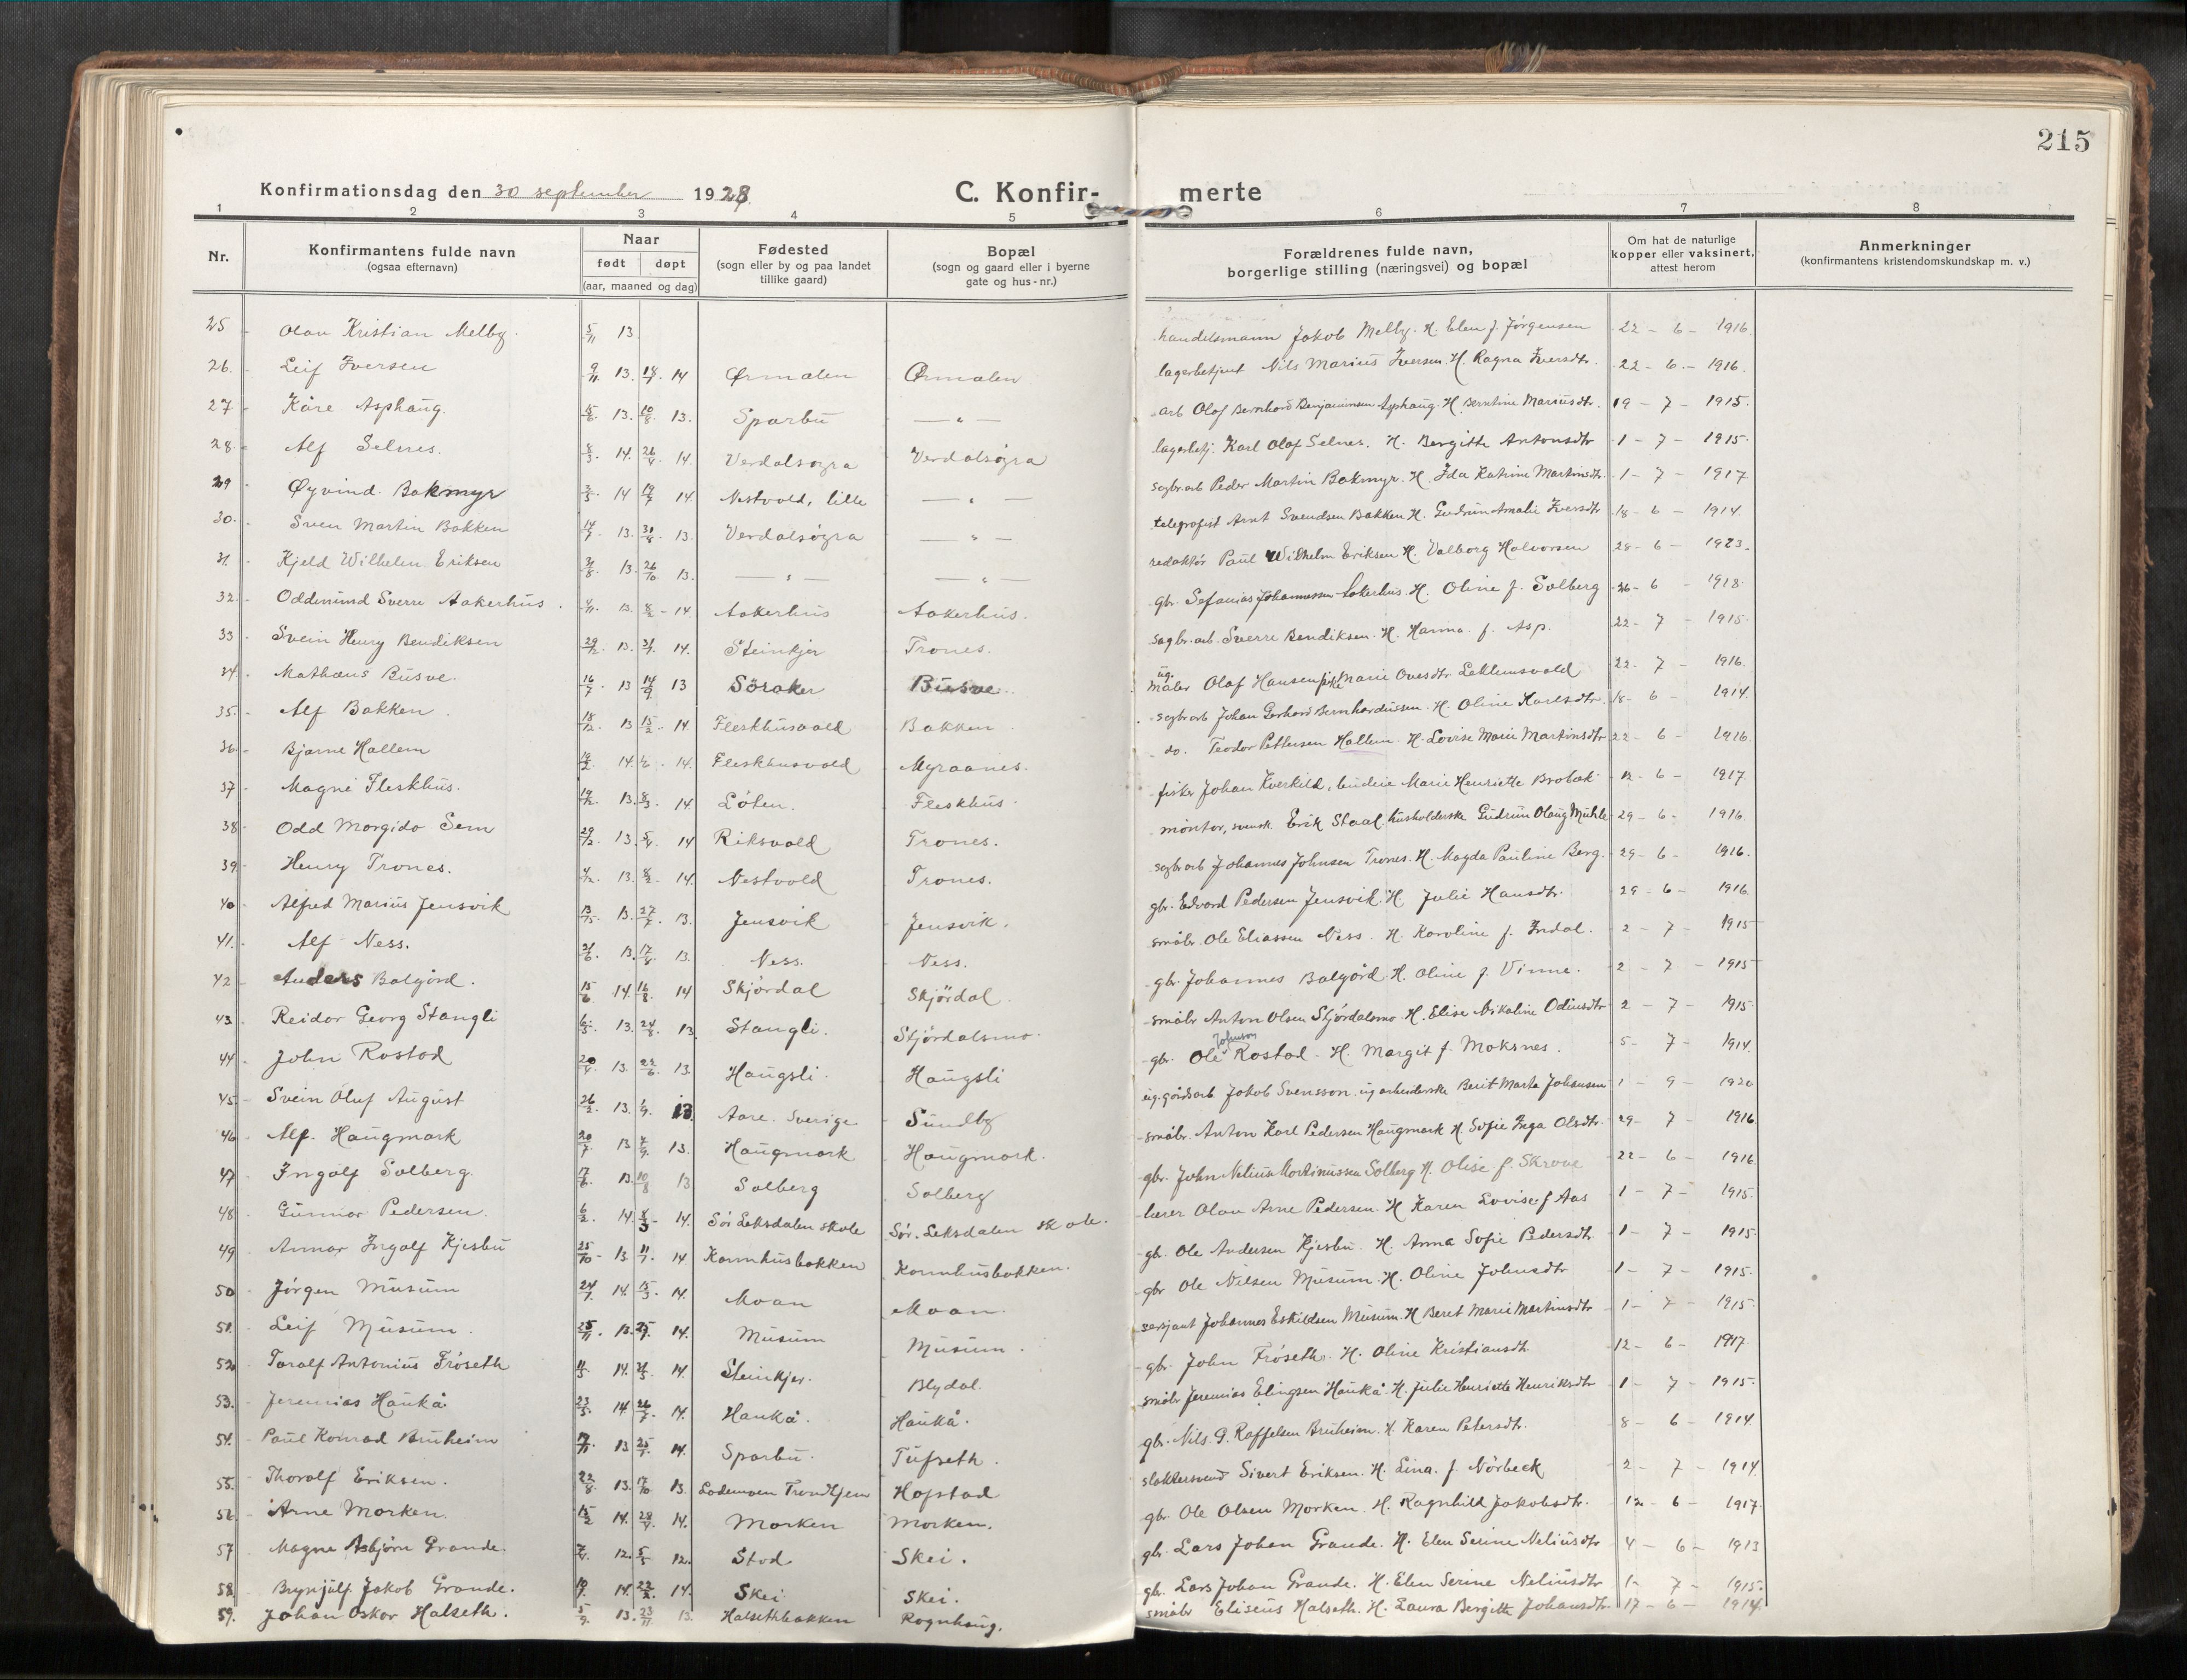 215
Konfirmationsdag den 30 september 1928. C. Konfir- merte
1 2 3 4 5 6 7 8
Nr. Konfirmantens fulde navn (ogsaa efternavn) Naar født døpt (aar, maaned og dag) Fødested (sogn eller by og paa landet tillike gaard) Bopæl (sogn og gaard eller i byerne gate og hus-nr.) Forældrenes fulde navn, borgerlige stilling (næringsvei) og bopæl Om hat de naturlige kopper eller vaksinert, attest herom Anmerkninger (konfirmantens kristendomskundskap m. v.)
25 Olav Kristian Melby. 5/11 13 handelsmann Jakob Melby. H. Elen f. Jörgensen 22 - 6 - 1916.
26. Leif Iversen 9/11 13. 18/7 14 Ørmelen Ørmelen lagerbetjent Nils Marius Iversen. H. Ragna Iversdtr. 22 - 6 - 1916.
27 Kåre Asphaug. 13. 10/8 13. Sparbu — " — arb Olaf Bernhard Benjaminsen Asphaug. H. Berntine Mariusdtr. 19 - 7 - 1915.
28. Alf Selnes. 8/3. 14. 26/4. 14. Verdalsøra Verdalsøra lagerbetj. Karl Olaf Selnes. H. Bergitte Antonsdtr 1 - 7 - 1915.
29 Øyvind Bakmyr 14 19/7 14 Nestvold, lille — " — sagbr.arb Peder Martin Bakmyr. H. Ida Katrine Martinsdtr. 1 - 7 - 1917
30. Sven Martin Bakken 14/7. 13. 31/8. 13. Verdalsøra — " — telegrafist Arnt Svendsen Bakken H. Gudrun Amalie Iversdtr 18 - 6 - 1914.
31. Kjeld Wilhelm Eriksen 13. 26/10. 13. — " — — " — redaktør Paul Wilhelm Eriksen H. Valborg Halvorsen 28 - 6 - 1923.
32. Oddmund Sverre Aakerhus. 4/11. 13. 8/2 - 14 Aakerhus Aakerhus. gbr. Sefanias Johannessen Aakerhus. H. Oline f. Solberg 26 - 6 - 1918.
33 Svein Henry Bendiksen 29/12. 13. 14. Steinkjer Trones. sagbr.arb. Sverre Bendiksen. H. Hanna f. Asp. 22 - 7 - 1915.
34. Mathæus Busve. 16/7. 13 14/9 13 Söraker Busve. ug. maler Olaf Hansen, pike Marie Ovesdtr Leklemsvald 22 - 7 - 1916.
35. Alf Bakken. 18/12 13 15/2 - 14 Fleskhusvald Bakken sagbr.arb Johan Gerhard Bernhardussen. H. Oline Karlsdtr. 18 - 6 - 1914.
36. Bjarne Hallem 14. 14. Fleskhusvald Myraanes. do. Teodor Pettersen Hallem. H. Lovise Marie Martinsdtr 22 - 6 - 1916.
37 Magne Fleskhus. 19/12. 13. 8/3. 14. Löten. Fleskhus. fisker Johan Kverkild, budeie Marie Henriette Brobak. 12 - 6 - 1917.
38. Odd Margido Sem 29/12. 13. 5/4. 14 Riksvold Trones. montør, svensk Erik Staal. husholderske Gudrun Olaug Mühle 29 - 6 - 1916.
39. Henry Trones. 13. 8/2. 14. Nestvold Trones. sagbr.arb Johannes Johnsen Trones. H. Magda Pauline Berg. 29 - 6 - 1916.
40. Alfred Marius Jensvik 13. 27/7. 13. Jensvik Jensvik. gbr. Edvard Pedersen Jensvik. H. Julie Hansdtr. 29 - 6 - 1916
41. Alf Ness. 13. 17/8. 13. Ness. Ness. småbr. Ole Eliassen Ness. H. Karoline f. Indal. 2 - 7 - 1915
42 Anders Balgård. 15/6. 14. 16/8. 14 Skjördal Skjördal. gbr. Johannes Balgård. H. Oline f. Vinne. 2 - 7 - 1915
43. Reidar Georg Stangli 13. 24/8. 13 Stangli. Stjördalsmo. småbr Anton Olsen Stjördalsmo. H. Elise Nikoline Odinsdtr 2 - 7 - 1915.
44 John Rostad 20/4. 13. 22/6. 13. Haugsli. Haugsli gbr. Ole Johnson Rostad. H. Margit f. Moksnes. 5 - 7 - 1914.
45. Svein Oluf August 26/2. 13. 1/9. 13. Aare. Sverige Sundby ug. gårdsarb Jakob Svensson. ug arbeiderske Berit Marta Johansen 1 - 9 - 1920
46 Alf Haugmark 20/7. 13 7/9. 13. Haugmark Haugmark. småbr. Anton Karl Pedersen Haugmark H. Sofie Inga Olsdtr. 29 - 7 - 1916
47 Ingolf Solberg. 17/6. 13. 10/8 13 Solberg Solberg gbr. John Nelius Martinussen Solberg H. Olise f. Skrove 22 - 6 - 1916.
48. Gunnar Pedersen. 6/2. 14. 8/3 - 14. Sör Leksdalen skole Sör. Leksdalen skole. lærer Olav Arne Pedersen. H. Karen Lovise f Aas 1 - 7 - 1915.
49 Annar Ingolf Kjesbu 25/10 - 13. 11/7. - 14 Kornhusbakken Kornhusbakken. gbr. Ole Andersen Kjesbu. H. Anna Sofie Pedersdtr. 1 - 7 - 1915.
50. Jörgen Musum 24/1. 14. 15/3. - 14. Moan Moan. gbr Ole Nilsen Musum. H. Oline Johnsdtr 1 - 7 - 1915.
51. Leif Musum. 25/11. 13. 14. Musum Musum. sersjant Johannes Eskildsen Musum. H Beret Marie Martinsdtr 1 - 7 - 1915.
52. Toralf Antonius Fröseth 14. 14. Steinkjer. Blydal. gbr. John Fröseth. H. Oline Kristiansdtr. 12 - 6 - 1917.
53. Jeremias Haukå 23/5. 14 26/7. 14. Haukå. Haukå. småbr Jeremias Elingsen Haukå. H. Julie Henriette Henriksdtr 1 - 7 - 1915.
54. Paul Konrad Bruheim 17/11. 13 25/1. 14. Sparbu. Tufseth. gbr. Nils. P. Roffelsen Bruheim. H. Karen Petersdtr. 8 - 6 - 1914.
55. Thoralf Eriksen. 22/8. 13. 17/10 13. Lademoen Trondhjem Hofstad slaktersvend Sivert Eriksen. H. Lina. f Nörbeck 2 - 7 - 1914.
56. Arne Morken. 15/2 14. 28/4. 14. Morken Morken. gbr. Ole Olsen Morken. H. Ragnhild Jakobsdtr. 12 - 6 - 1917.
57 Magne Asbjörn Grande. 12. 5/5 12. Stod Skei. gbr. Lars Johan Grande. H. Elen Serine Neliusdtr 4 - 6 - 1913
58. Brynjulf Jakob Grande. 14. 14. Skei Skei. gbr. Lars Johan Grande. H. Elen Serine Neliusdtr 1 - 7 - 1915.
59. Johan Oskar Halseth. 5/9. 13. 23/11 13. Halsethbakken Rognhaug. småbr Eliseus Halseth. H. Laura Bergitte Johansdtr. 17 - 6 - 1914.